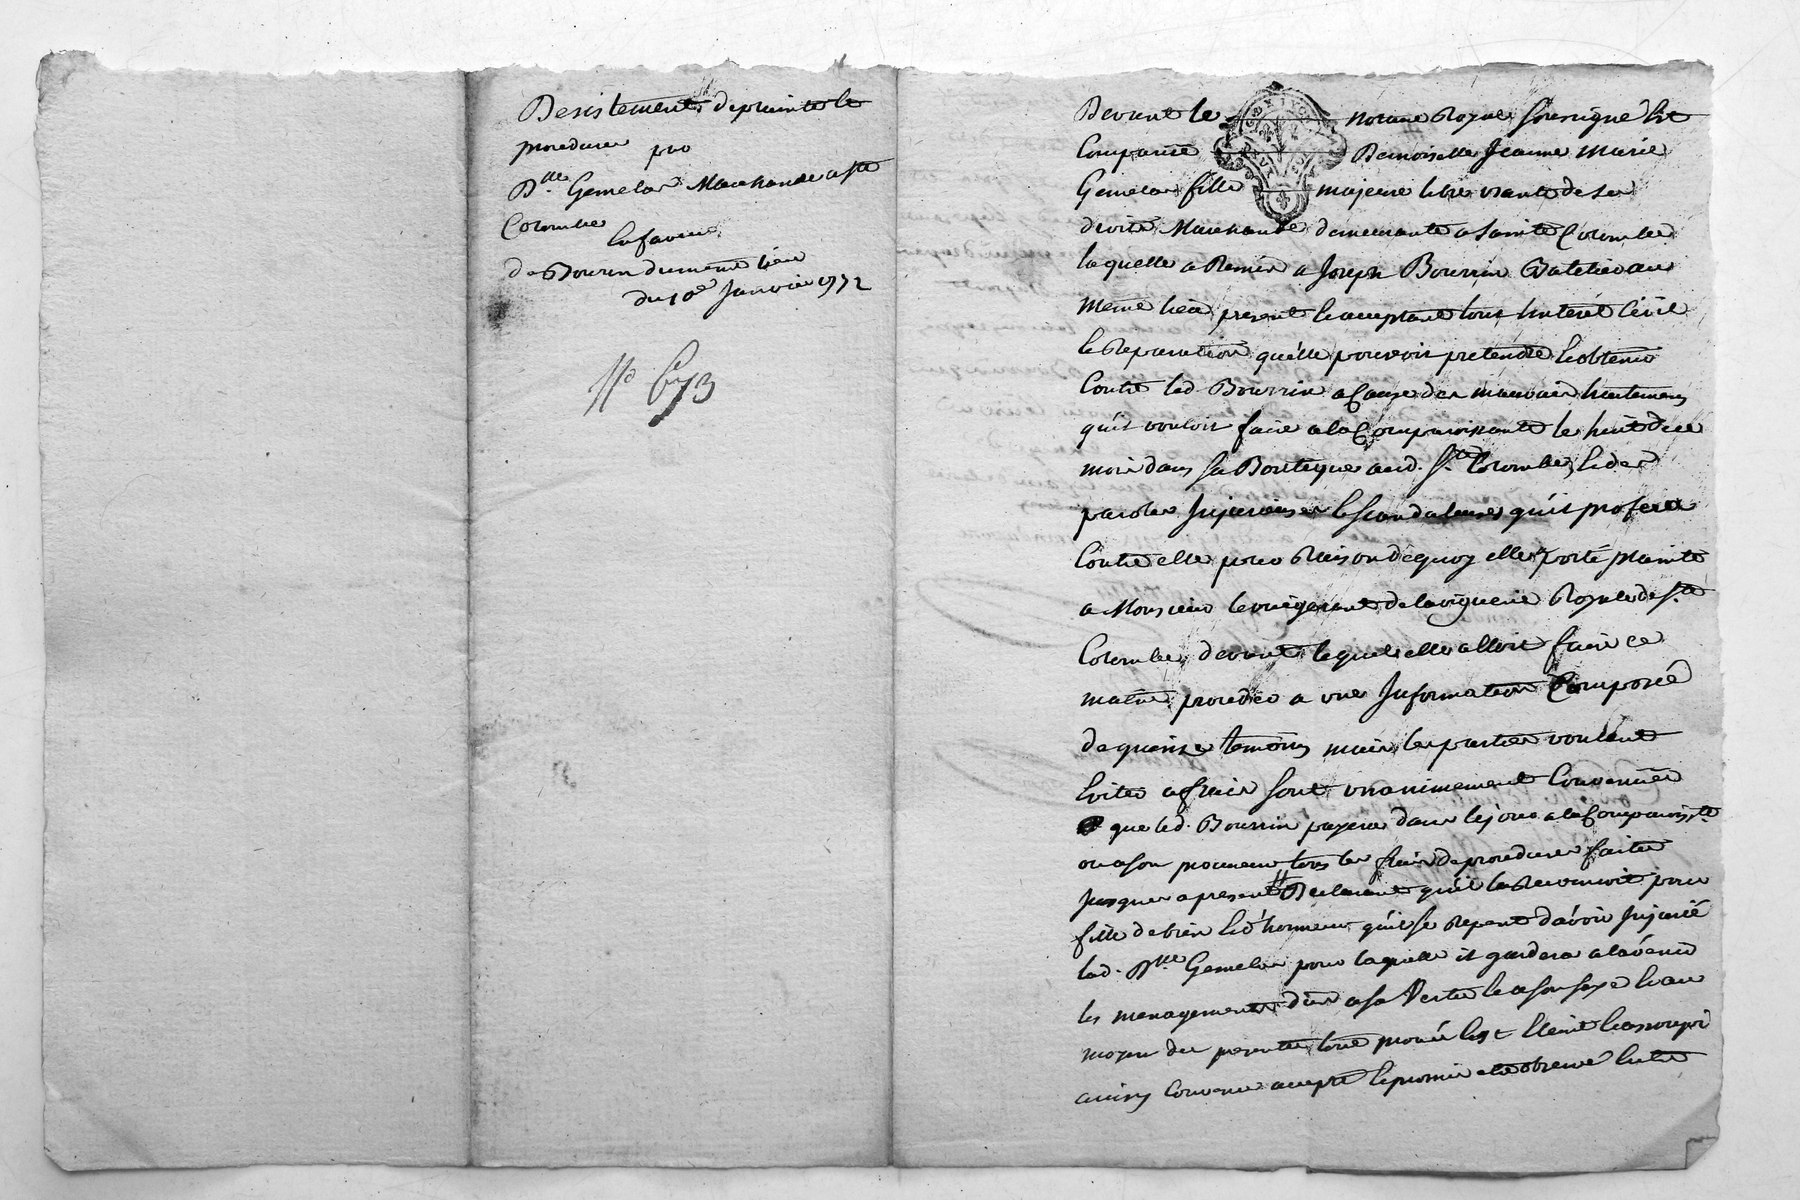 Desistement de plainte et
procedure
par
Dlle Gemelas Marchande a Ste
Colombe
En faveur
de Bourrin du meme lieu
du 10e Janvier 1772
No 673
Devant le notaire Royal soussigné Est
Comparue Demoiselle Jeanne Marie
Gemelas fille majeure libre usante de ses
droits Marchande demeurante a Sainte Colombe
laquelle a Remis a Joseph Bourrin Batelier au
meme lieu present et acceptant tout Interét Civil
et Reparation qu'elle pouvoit pretendre et obtenir
Contre led. Bourrin a Cause des mauvais traitemens
qu'il vouloit faire a la Comparoissante le huit de ce
mois dans sa Boutique aud. Ste Colombe, et des
paroles Injurieuses et scandaleuses qu'il profera
Contre elle pour Raison de quoy elle a porté plainte
a Monsieur le viégerent de la viguerie Royale de Ste
Colombe, devant lequel elle alloit faire ce
matin proceder a une Information Composée
de quinze temoins mais les parties voulant
Eviter a frais sont unanimement Convenues
que led. Bourrin payera dans le jour a la Comparoisste
ou a son procureur tous les frais de procedure faites
jusques a present Declarant qu'il la Reconnoit pour
fille de bien et d'honneur qu'il se Repent d'avoir Injurié
lad. Dlle Gemelas pour laquelle il gardera a l'avenir
les menagements dus a sa Vertu et a son sexe et au
moyen des presentes tout procés Est Eteint et assoupi
ainsy Convenu accepté et promis etre observé Entre